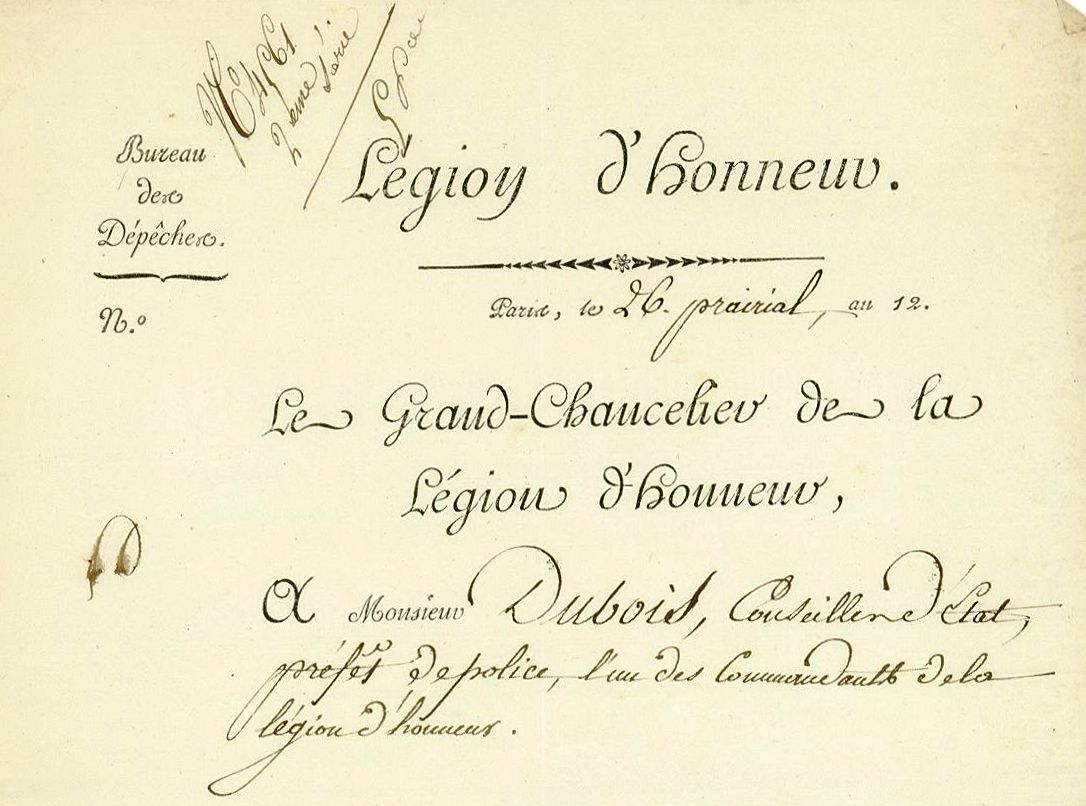 N.º 4561
2eme Série
Bureau
des
Dépêches.
N.º
Légion d'honneur.
Paris, le 26. prairial, an 12.
Le Grand-Chancelier de la
Légion d'honneur,
A Monsieur Dubois, Conseiller d'état,
préfet de police, l'un des Commandants de la
légion d'honneur.